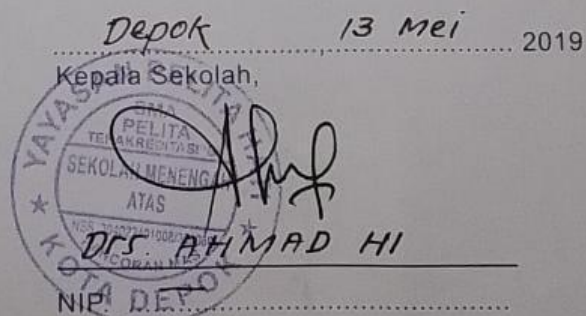 Depok 13 Mei 2019
Kepala Sekolah,
YAYASAN PELITA
SMA
PELITA
TERAKREDITASI
SEKOLAH MENENGAH
ATAS
NSS
Drs. AHMAD HI
KOTA DEPOK
NIP.